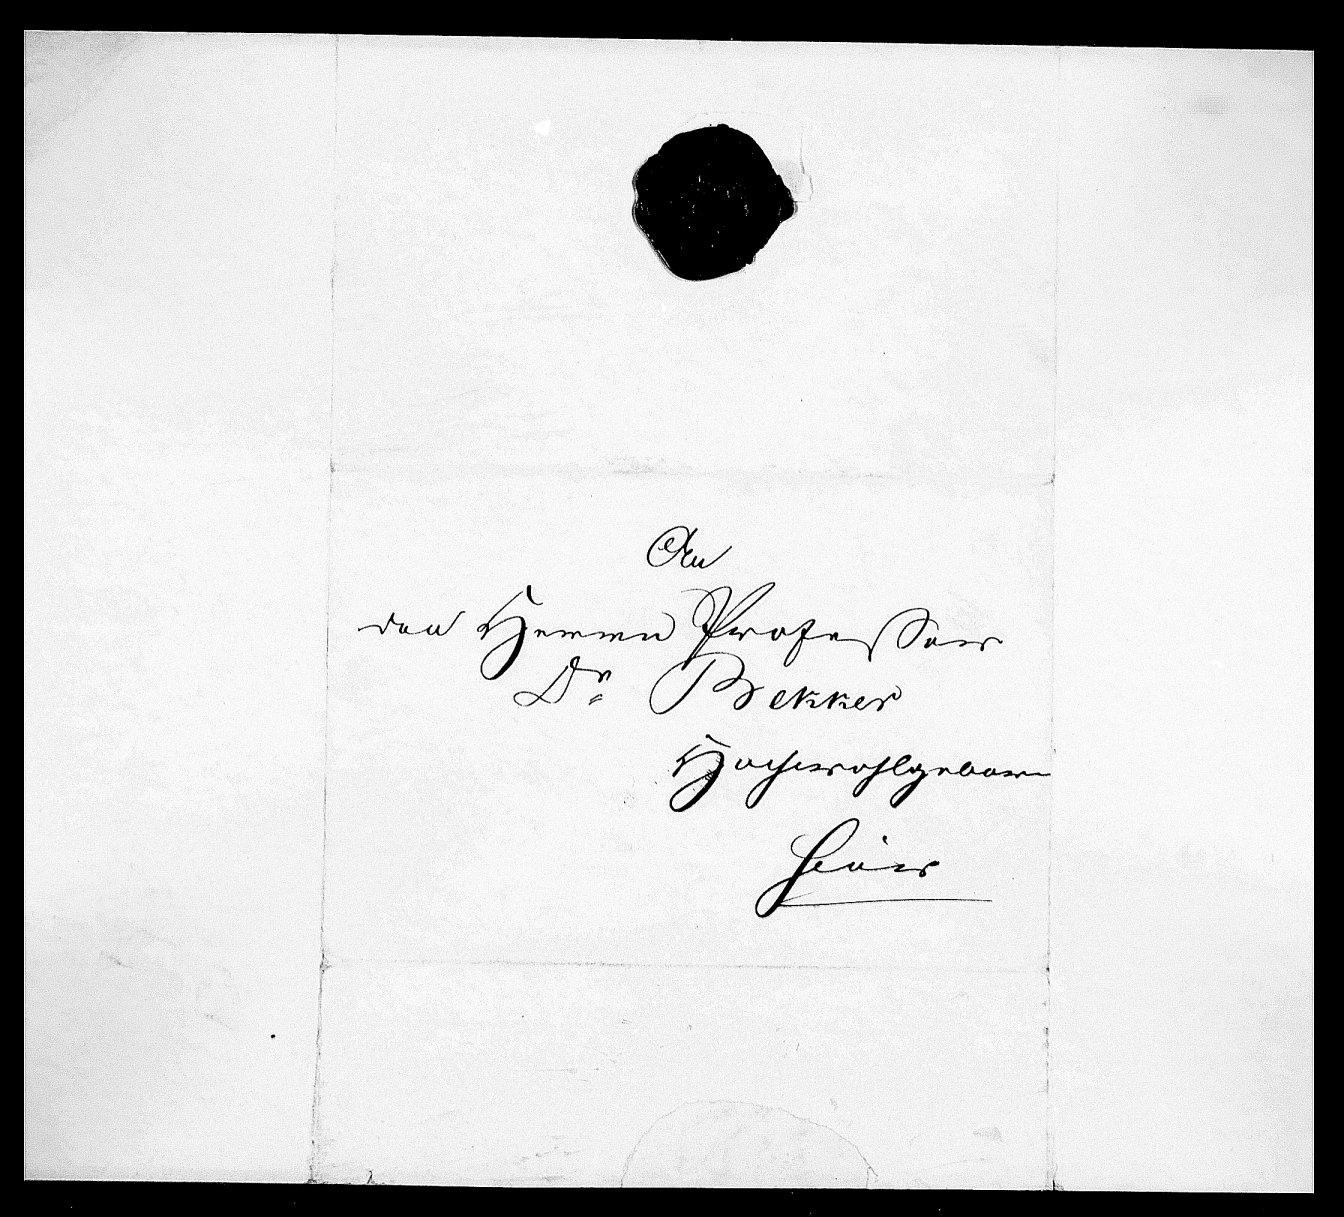 An
den Herrn Professor
Dr Bekker
Hochwohlgeboren
hier